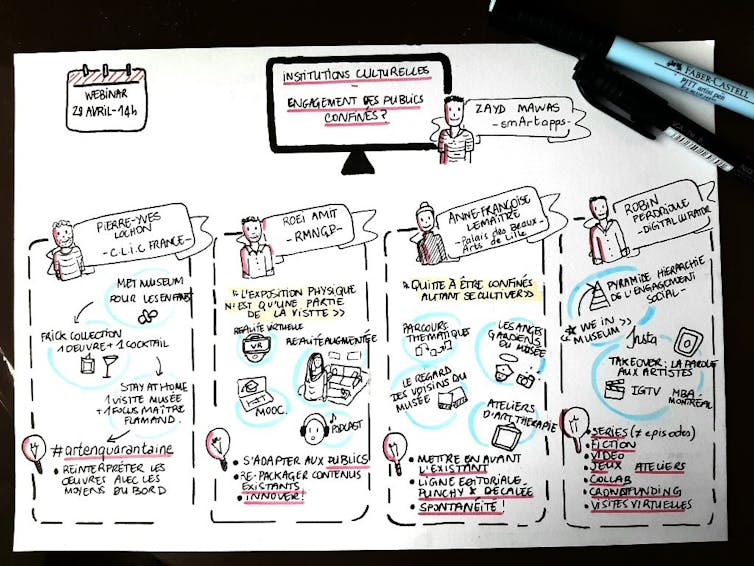 WEBINAR
29 AVRIL-14h
INSTITUTIONS CULTURELLES
-
ENGAGEMENT DES PUBLICS
CONFINÉS?
ZAYD MAWAS
-smArtapps-
FABER-CASTELL
PITT artist pen
PIERRE-YVES
LOCHON
-C.L.I.C FRANCE-
MET MUSEUM
POUR LES ENFANTS
FRICK COLLECTION
1 OEUVRE + 1 COCKTAIL
STAY AT HOME
1 VISITE MUSÉE
+ 1 FOCUS MAÎTRE
FLAMAND.
#artenquarantaine
• REINTERPRÉTER LES
OEUVRES AVEC LES
MOYENS DU BORD
ROEI AMIT
-RMNGP-
"L'EXPOSITION PHYSIQUE
N'EST QU'UNE PARTIE
DE LA VISITE >>
REALITÉ VIRTUELLE
VR
REALITÉ AUGMENTÉE
MOOC.
PODCAST
• S'ADAPTER AUX PUBLICS
• RE-PACKAGER CONTENUS
EXISTANTS
• INNOVER!
ANNE-FRANÇOISE
LEMAÎTRE
-Palais des Beaux-
Arts de Lille
"QUITTE À ÊTRE CONFINÉS
AUTANT SE CULTIVER>>
PARCOURS
THEMATIQUE
LES ANGES
GARDIENS
DU MUSÉE
LE REGARD
DES VOISINS DU
MUSÉE
ATELIERS
D'ART THÉRAPIE
• METTRE EN AVANT
L'EXISTANT
• LIGNE EDITORIALE
PUNCHY & DECALÉE
• SPONTANÉITÉ!
ROBIN
-DIGITAL CURATOR-
PYRAMIDE HIERARCHIE
DE L'ENGAGEMENT
SOCIAL-
WE IN >>
MUSEUM
Insta
TAKEOVER: LA PAROLE
AUX ARTISTES
IGTV
MBA-
MONTRÉAL
• SERIES (≠ episodes)
• FICTION
• VIDEO
• JEUX ATELIERS
• COLLAB
• CROWDFUNDING
• VISITES VIRTUELLES